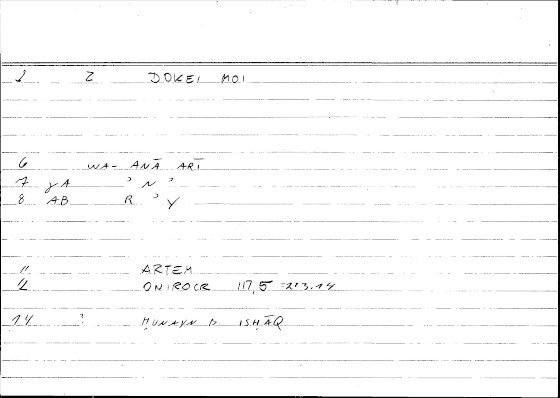 1 2 DOKEI MOI
6 WA- ANĀ ARĪ
7 γA ʾ N ʾ
8 AB R ʾ Y
11 ARTEM
12 ONIROCR 117,5 = 213.14
14 ? ḤUNAYN B ISḤĀQ